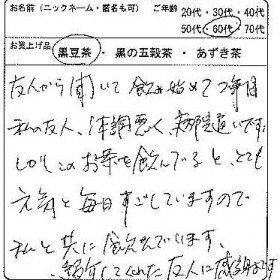 お名前(ニックネーム・匿名も可) ご年齢
20代・30代・40代
50代・60代・70代
お買上げ品
黒豆茶・黒の五穀茶・あずき茶
友人から聞いて飲み始めて2年目
私の友人、体調悪く、病院通いです。
しかしこのお茶を飲んでいると、とても
元気と毎日すごしていますので
私と共に飲んでいます。
紹介してくれた友人に感謝です